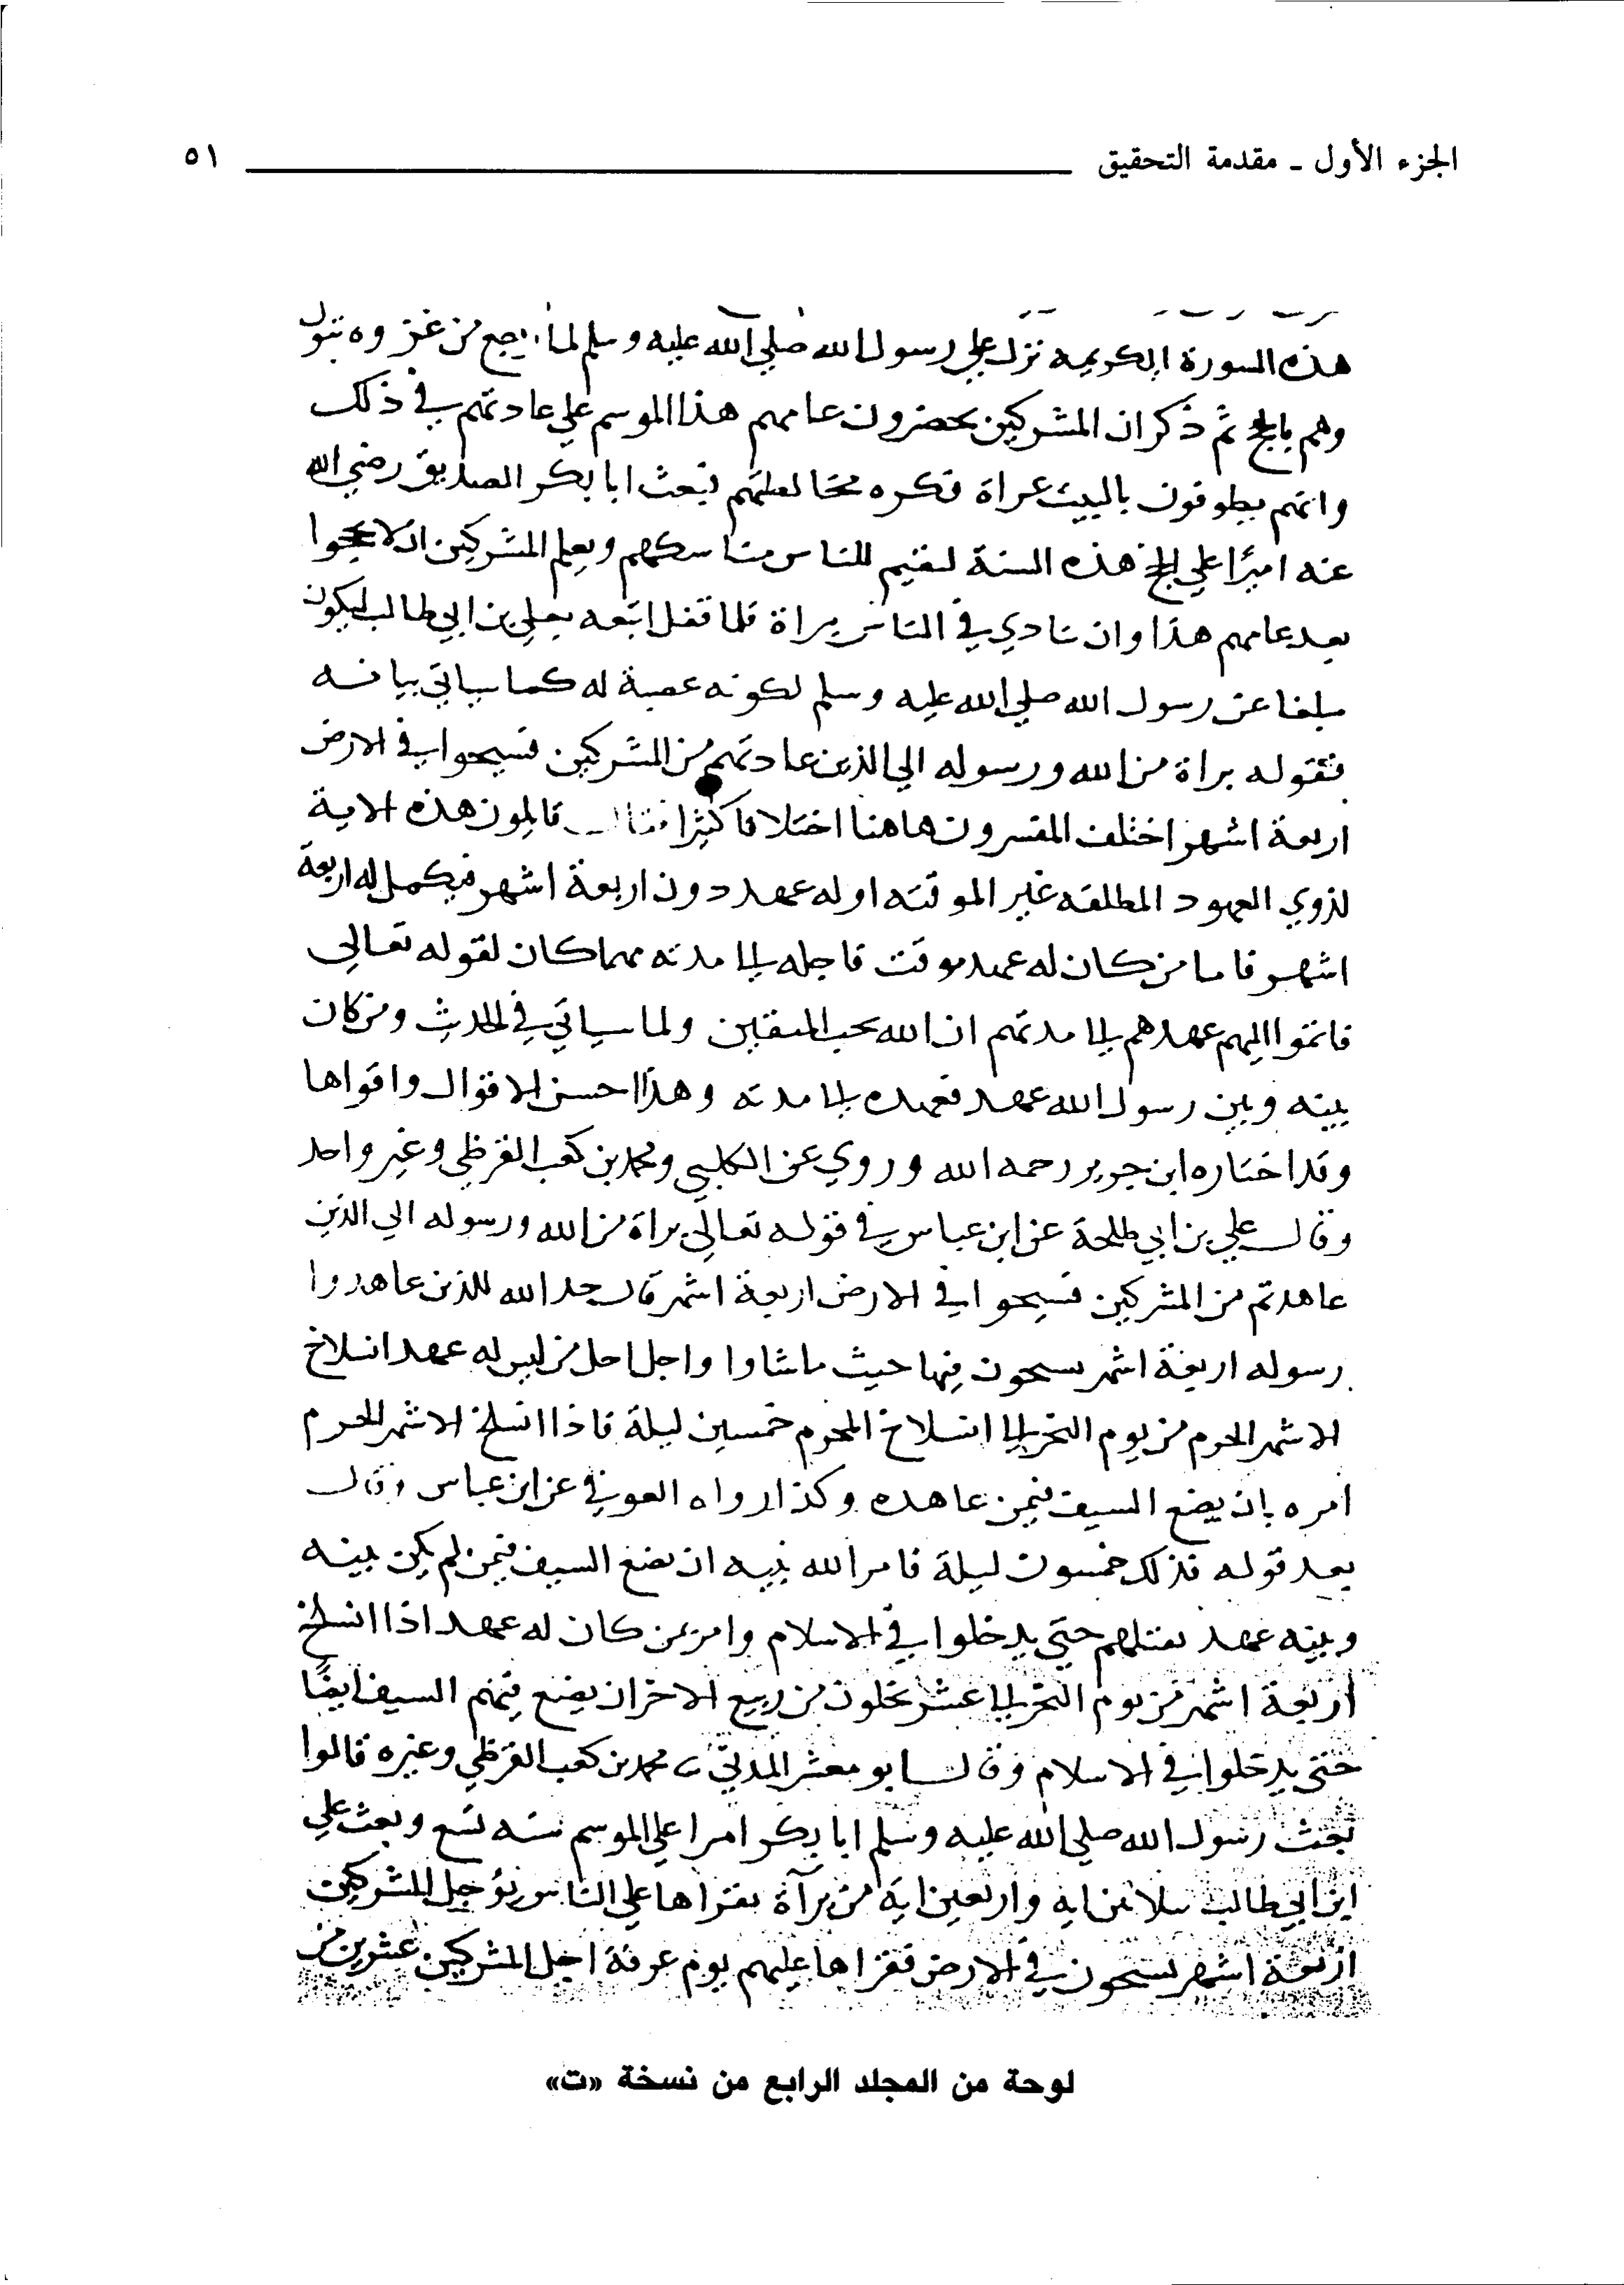 الجزء الأول - مقدمة التحقيق ٥١
هذه السورة الكريمة نزل علي رسول الله صلي الله عليه وسلم لما رجع من غزوه تبوك
وهم بالحج ثم ذكر ان المشركين يحضرون عامهم هذا الموسم علي عادتهم في ذلك
وانهم يطوفون بالبيت عراة فكره مخالطتهم فبعث ابا بكر الصديق رضي الله
عنه اميرًا علي الحج هذه السنة ليقيم للناس مناسكهم ويعلم المشركين ان لا يحجوا
بعد عامهم هذا وان ينادي في الناس براة فلما قفل اتبعه بعلي بن ابي طالب ليكون
مبلغا عن رسول الله صلي الله عليه وسلم لكونه عصبة له كما سياتي بيانه
فقوله براة من الله ورسوله الي الذين عاهدتم من المشركين فسيحوا في الارض
اربعة اشهر اختلف المفسرون هاهنا اختلافا كثيرا فقال قايلون هذه الاية
لذوي العهود المطلقه غير الموقته او له عهد دون اربعة اشهر فيكمل له اربعة
اشهر فاما من كان له عهد موقت فاجله الي مدته مهما كان لقوله تعالي
فاتموا اليهم عهدهم الي مدتهم ان الله يحب المتقين ولما سياتي في الحديث ومن كان
بينه وبين رسول الله عهد فعهده الي مدته وهذا احسن الاقوال واقواها
وقد اختاره ابن جرير رحمه الله وروي عن الكلبي ومحمد بن كعب القرظي وغير واحد
وقال علي بن ابي طلحة عن ابن عباس في قوله تعالي براة من الله ورسوله الي الذين
عاهدتم من المشركين فسيحوا في الارض اربعة اشهر قال حد الله للذين عاهدوا
رسوله اربعة اشهر يسيحون فيها حيث ماشاوا واجل اجل من ليس له عهد انسلاخ
الاشهر الحرم من يوم النحر الي انسلاخ المحرم خمسين ليلة فاذا انسلخ الاشهر الحرم
امره بان يضع السيف فيمن عاهده وكذا رواه العوفي عن ابن عباس وقال
بعد قوله فذلك خمسون ليلة فامر الله نبيه ان يضع السيف فيمن لم يكن بينه
وبينه عهد يقتلهم حتي يدخلوا في الاسلام وامر بمن كان له عهد اذا انسلخ
اربعة اشهر من يوم النحر الي عشر يخلون من ربيع الاخر ان يضع فيهم السيف ايضًا
حتى يدخلوا في الاسلام وقال ابو معشر المدني محمد بن كعب القرظي وغيره قالوا
بعث رسول الله صلي الله عليه وسلم ابا بكر اميرا علي الموسم سنه تسع وبعث علي
ابن ابي طالب بثلاثين ايه واربعين ايه من برآة يقراها علي الناس يؤجل المشركين
اربعة اشهر يسيحون في الارض فقراها عليهم يوم عرفة اجل المشركين عشرين من
لوحة من المجلد الرابع من نسخة «ت»